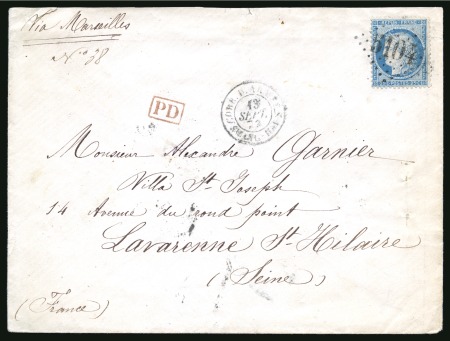 Via Marseilles
N° 38
5104
PD
CORR. D. ARM.
13
SEPT.
Monsieur Alexandre Garnier
Villa St Joseph
14 Avenue du rond point
Lavarenne St Hilaire
(Seine)
(France)